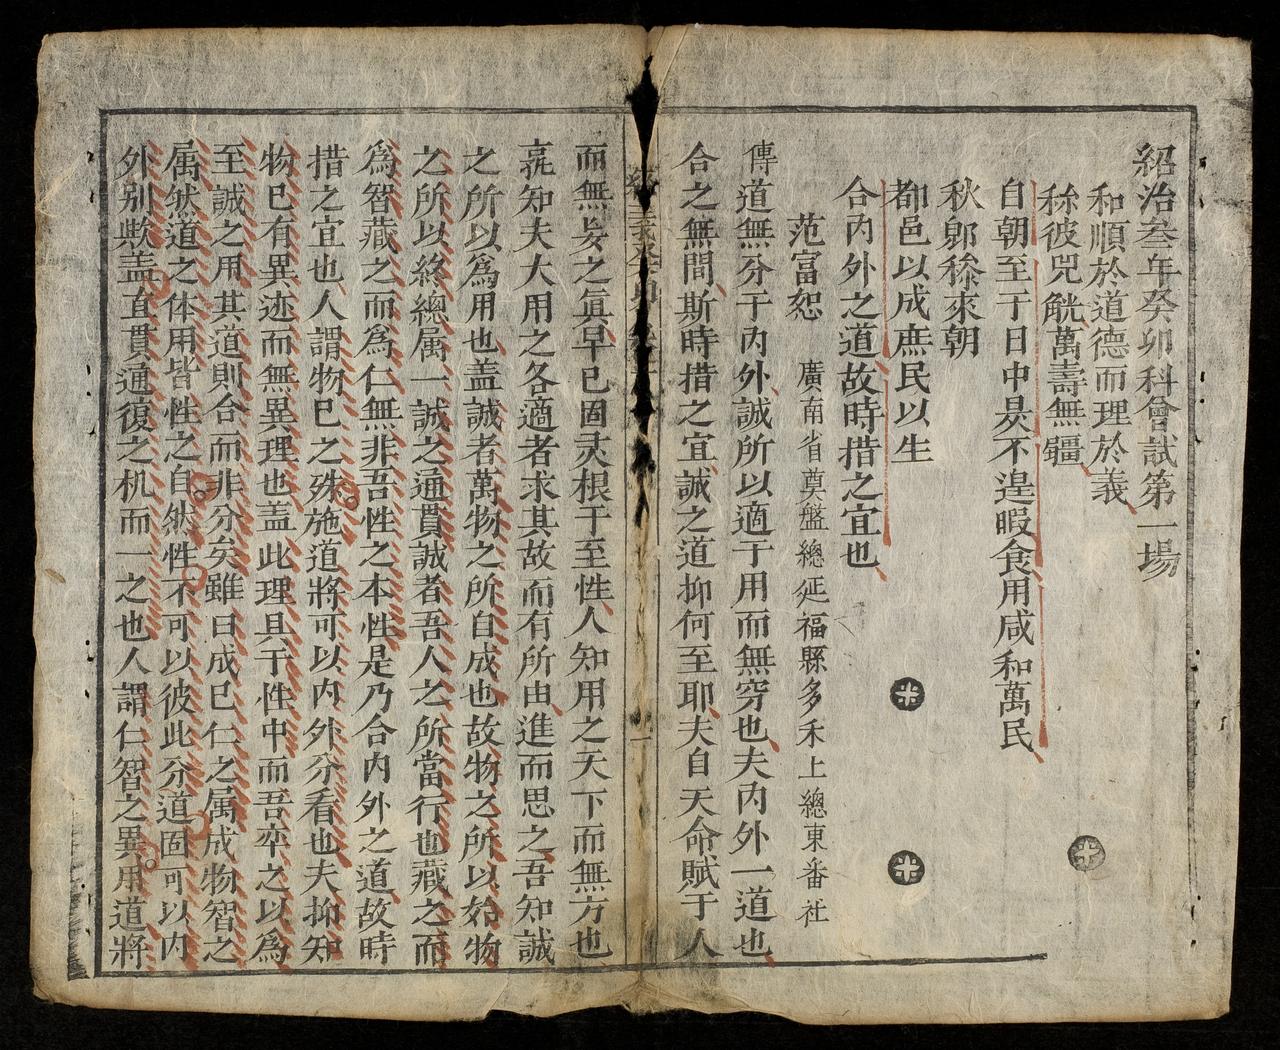 紹治叁年癸卯科會試第一場
和順於道德而理於義
稱彼兕觥萬壽無疆
自朝至于日中昃不遑暇食用咸和萬民
秋郳來朝
都邑以成庶民以生
合內外之道故時措之宜也
范富恕 廣南省奠盤總延福縣多禾上總東番社
傳道無分于內外誠所以適于用而無窮也夫內外一道也
合之無間斯時措之宜誠之道抑何至耶夫自天命賦于人
而無妄之眞早已固灵根于至性人知用之天下而無方也
知夫大用之各適者求其故而有所由進而思之吾知誠
之所以爲用也盖誠者萬物之所自成也故物之所以始物
之所以終總属一誠之通貫誠者吾人之所當行也藏之而
爲智藏之而爲仁無非吾性之本性是乃合內外之道故時
措之宜也人謂物已之殊施道將可以內外分看也夫抑知
物已有異迹而無異理也盖此理具于性中而吾率之以爲
至誠之用其道則合而非分矣雖曰成已仁之属成物智之
属然道之体用皆性之自然性不可以彼此分道固可以內
外別欺盖直貫通復之机而一之也人謂仁智之異用道將